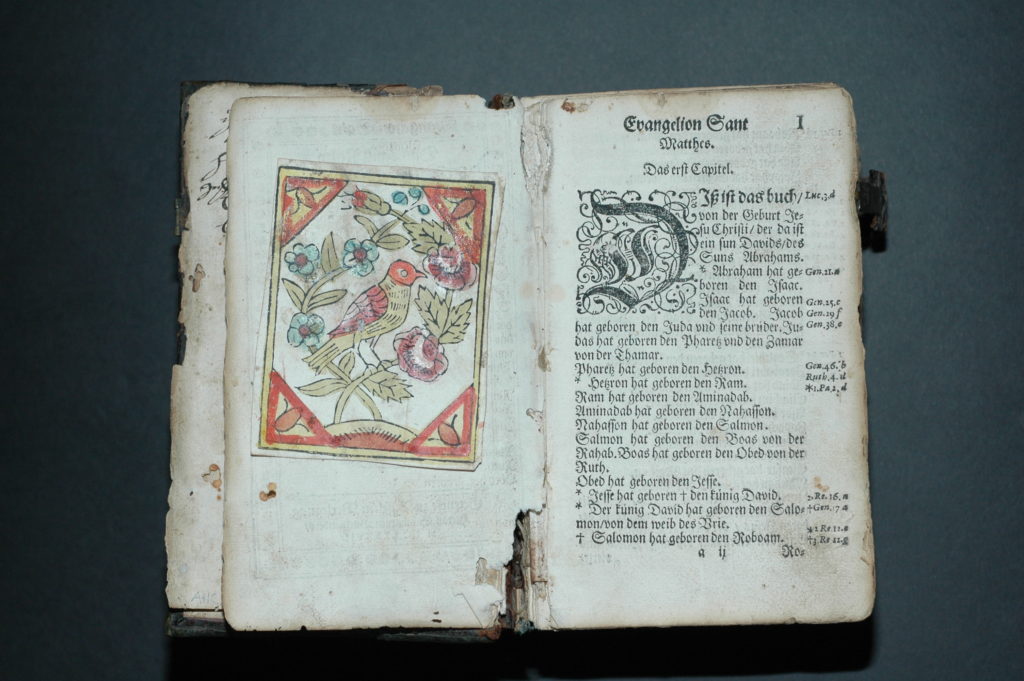 Evangelion Sant
I
Matthes.
Das erst Capitel.
Diß ist das buch/ Luc.3.d
von der Geburt Je-
su Christi/der da ist
ein sun Davids/des
Suns Abrahams.
* Abraham hat ge- Gen.21.a
boren den Isaac.
Isaac hat geboren Gen.25.c
den Jacob. Jacob Gen.29 f
hat geboren den Juda vnd seine brüder. Ju- Gen.38.e
das hat geboren den Pharetz vnd den Zamar
von der Thamar.
Pharetz hat geboren den Hetzron. Gen.46.b
* Hetzron hat geboren den Ram. Ruth.4.d
Ram hat geboren den Aminadab. *1.Pa.2.d
Aminadab hat geboren den Nahasson.
Nahasson hat geboren den Salmon.
Salmon hat geboren den Boas von der
Rahab. Boas hat geboren den Obed von der
Ruth.
Obed hat geboren den Jesse.
* Jesse hat geboren † den künig David. 2.Re.16.a
* Der künig David hat geboren den Salo- †Gen.7 a
mon/von dem weib des Vrie.
† Salomon hat geboren den Roboam.
a ij Ro-